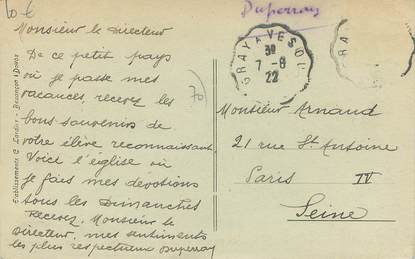 10 €
Duperray
Monsieur le Directeur
De ce petit pays
où je passe mes
vacances, recevez les
bons souvenirs de
votre élève reconnaissant.
Voici l'église où
je fais mes dévotions
tous les Dimanches
Recevez, Monsieur le
Directeur, mes sentiments
les plus respectueux Duperray
70
Etablissements C. Lardier - Besançon (Doubs)
GRAY A VESOUL
7-8
22
GRAY
Monsieur Arnaud
21 rue St Antoine
Paris IV
Seine